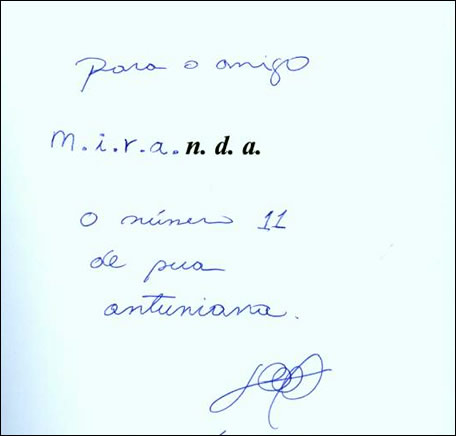 Para o amigo
M.i.r.a.n. d. a.
o número 11
de pua
antuniana.